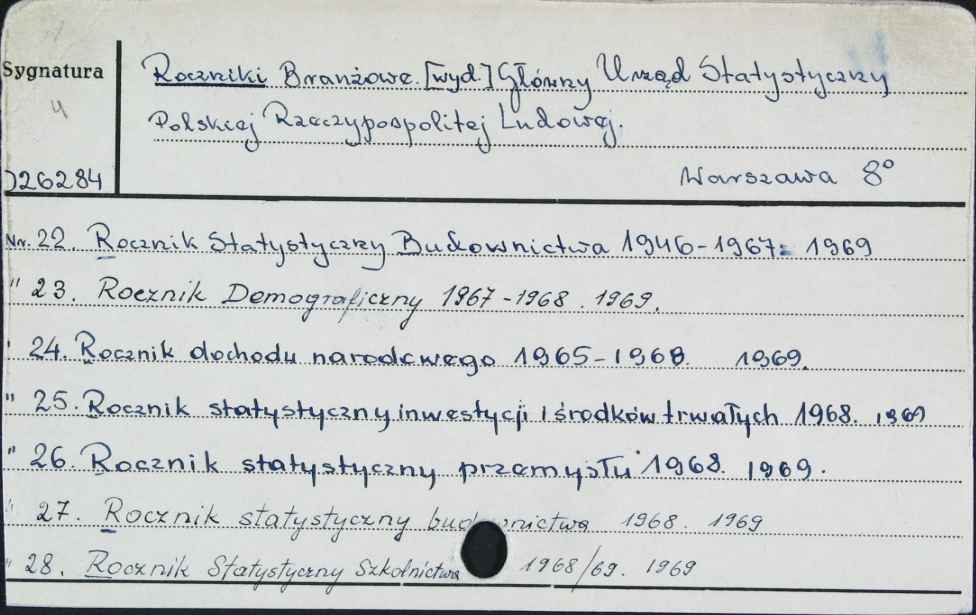 Sygnatura
Roczniki Branżowe. [wyd.] Główny Urząd Statystyczny
4
Polskiej Rzeczypospolitej Ludowej.
026284
Warszawa 8°
Nr. 22. Rocznik Statystyczny Budownictwa 1946-1967. 1969
" 23. Rocznik Demograficzny 1967-1968. 1969.
" 24. Rocznik dochodu narodowego 1965-1968. 1969.
" 25. Rocznik statystyczny inwestycji i środków trwałych 1968. 1969
" 26. Rocznik statystyczny przemysłu 1968. 1969.
" 27. Rocznik statystyczny budownictwa 1968. 1969
" 28. Rocznik Statystyczny Szkolnictwa 1968/69. 1969